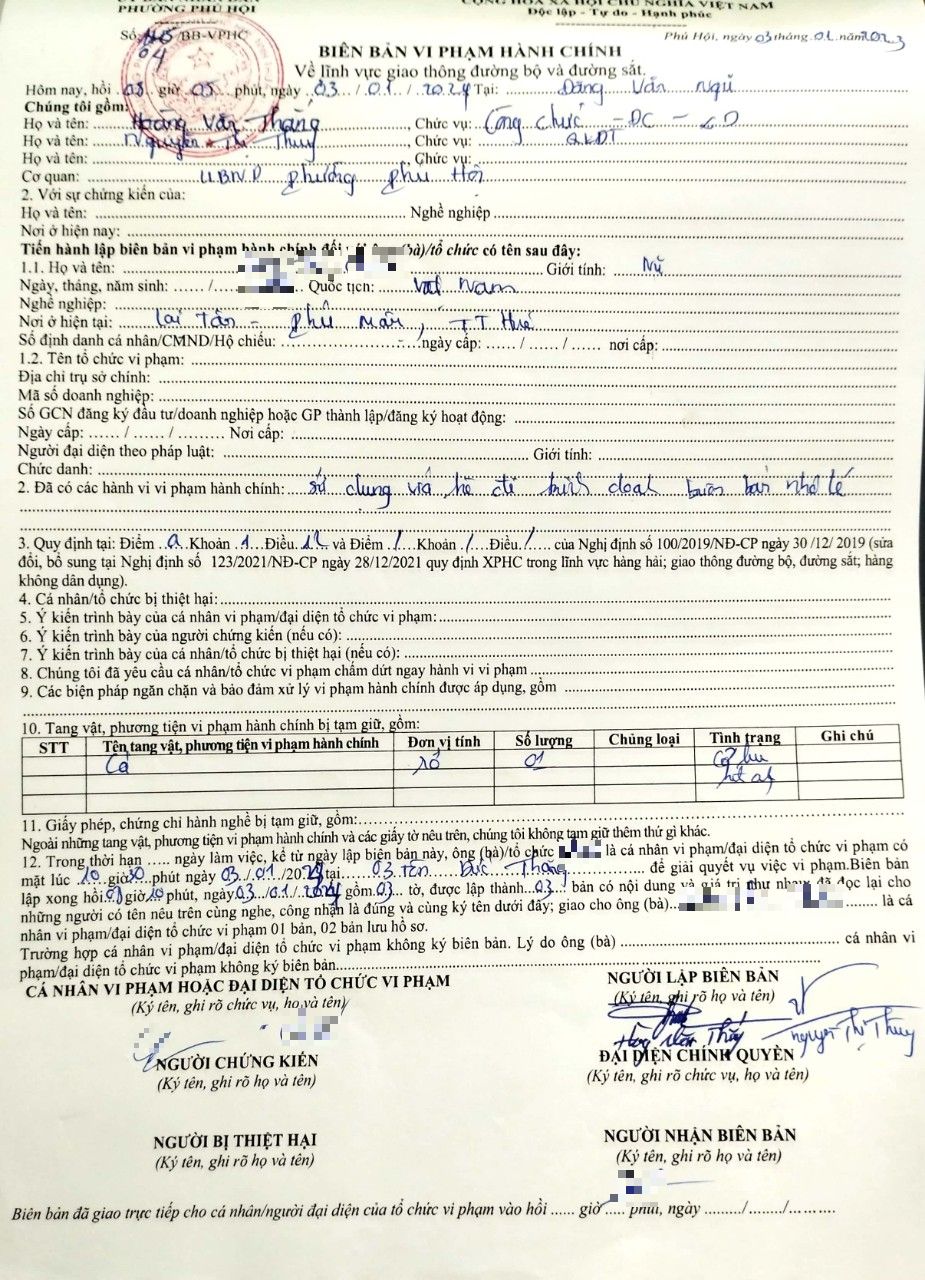 PHƯỜNG PHÚ HỘI
CỘNG HÒA XÃ HỘI CHỦ NGHĨA VIỆT NAM
Độc lập - Tự do - Hạnh phúc
Số: 04 /BB-VPHC
Phú Hội, ngày 03 tháng 01 năm 2023
BIÊN BẢN VI PHẠM HÀNH CHÍNH
Về lĩnh vực giao thông đường bộ và đường sắt.
Hôm nay, hồi 08 giờ 05 phút, ngày 03 / 01 / 2024 Tại: Đặng Văn Ngữ
Chúng tôi gồm:
Họ và tên: Hoàng Văn Thắng, Chức vụ: Công chức - ĐC - XD
Họ và tên: Nguyễn Thị Thùy, Chức vụ: QLĐT
Họ và tên: Chức vụ:
Cơ quan: UBND phường Phú Hội
2. Với sự chứng kiến của:
Họ và tên: Nghề nghiệp
Nơi ở hiện nay:
Tiến hành lập biên bản vi phạm hành chính đối (bà)/tổ chức có tên sau đây:
1.1. Họ và tên: Giới tính: Nữ
Ngày, tháng, năm sinh: ...... / Quốc tịch: Việt Nam
Nghề nghiệp:
Nơi ở hiện tại: Lại Tân - Phú Mậu, TT Huế
Số định danh cá nhân/CMND/Hộ chiếu: ngày cấp: ...... / ...... / ...... nơi cấp:
1.2. Tên tổ chức vi phạm:
Địa chỉ trụ sở chính:
Mã số doanh nghiệp:
Số GCN đăng ký đầu tư/doanh nghiệp hoặc GP thành lập/đăng ký hoạt động:
Ngày cấp: ...... / ...... / ......... Nơi cấp:
Người đại diện theo pháp luật: Giới tính:
Chức danh:
2. Đã có các hành vi vi phạm hành chính: sử dụng vỉa hè để buôn bán nhỏ lẻ
3. Quy định tại: Điểm a Khoản 1 Điều 12 và Điểm / Khoản / Điều / của Nghị định số 100/2019/NĐ-CP ngày 30 /12/ 2019 (sửa
đổi, bổ sung tại Nghị định số 123/2021/NĐ-CP ngày 28/12/2021 quy định XPHC trong lĩnh vực hàng hải; giao thông đường bộ, đường sắt; hàng
không dân dụng).
4. Cá nhân/tổ chức bị thiệt hại:
5. Ý kiến trình bày của cá nhân vi phạm/đại diện tổ chức vi phạm:
6. Ý kiến trình bày của người chứng kiến (nếu có):
7. Ý kiến trình bày của cá nhân/tổ chức bị thiệt hại (nếu có):
8. Chúng tôi đã yêu cầu cá nhân/tổ chức vi phạm chấm dứt ngay hành vi vi phạm
9. Các biện pháp ngăn chặn và bảo đảm xử lý vi phạm hành chính được áp dụng, gồm
10. Tang vật, phương tiện vi phạm hành chính bị tạm giữ, gồm:
STT Tên tang vật, phương tiện vi phạm hành chính Đơn vị tính Số lượng Chủng loại Tình trạng Ghi chú
Cá rổ 01
11. Giấy phép, chứng chỉ hành nghề bị tạm giữ, gồm:
Ngoài những tang vật, phương tiện vi phạm hành chính và các giấy tờ nêu trên, chúng tôi không tạm giữ thêm thứ gì khác.
12. Trong thời hạn ..... ngày làm việc, kể từ ngày lập biên bản này, ông (bà)/tổ chức là cá nhân/tổ chức vi phạm có
mặt lúc 10 giờ 30 phút ngày 03 / 01 /20 tại 03 Tôn Đức Thắng để giải quyết vụ việc vi phạm.Biên bản
lập xong hồi 08 giờ 10 phút, ngày 03 / 01 / 2024 gồm 03 tờ, được lập thành 03 bản có nội dung và giá trị như nhau đã đọc lại cho
những người có tên nêu trên cùng nghe, công nhận là đúng và cùng ký tên dưới đây; giao cho ông (bà) là cá
nhân vi phạm/đại diện tổ chức vi phạm 01 bản, 02 bản lưu hồ sơ.
Trường hợp cá nhân vi phạm/đại diện tổ chức vi phạm không ký biên bản. Lý do ông (bà) cá nhân vi
phạm/đại diện tổ chức vi phạm không ký biên bản.
CÁ NHÂN VI PHẠM HOẶC ĐẠI DIỆN TỔ CHỨC VI PHẠM
(Ký tên, ghi rõ chức vụ, họ và tên)
NGƯỜI LẬP BIÊN BẢN
(Ký tên, ghi rõ họ và tên)
Nguyễn Thị Thùy
NGƯỜI CHỨNG KIẾN
(Ký tên, ghi rõ họ và tên)
ĐẠI DIỆN CHÍNH QUYỀN
(Ký tên, ghi rõ chức vụ, họ và tên)
NGƯỜI BỊ THIỆT HẠI
(Ký tên, ghi rõ họ và tên)
NGƯỜI NHẬN BIÊN BẢN
(Ký tên, ghi rõ họ và tên)
Biên bản đã giao trực tiếp cho cá nhân/người đại diện của tổ chức vi phạm vào hồi ...... giờ ..... phút, ngày ........./......../..........